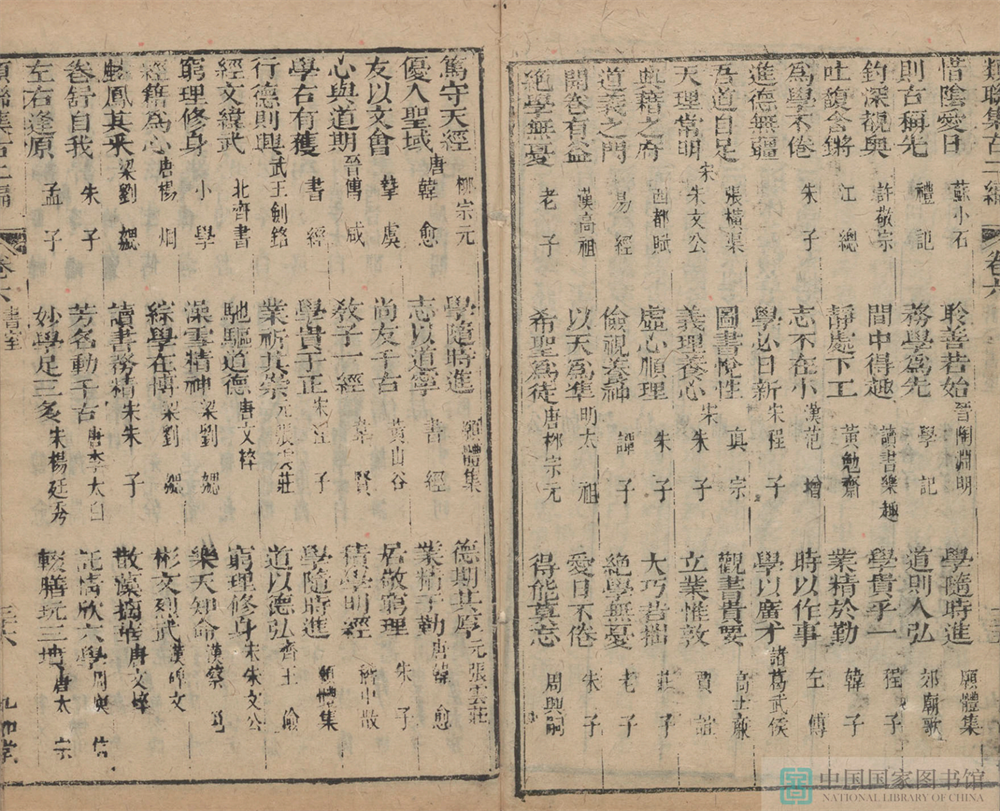 類聯集古二編 卷六
惜陰愛日 蘇小石 聆善若始 晉陶淵明 學隨時進 願體集
則古稱先 禮記 務學爲先 學記 道則人弘 郊廟歌
釣深覩奧 許敬宗 間中得趣 讀書樂趣 學貴乎一 程子
吐馥含鏘 江總 靜處下工 黃勉齋 業精於勤 韓子
爲學不倦 朱子 志不在小 漢范增 時以作事 左傳
進德無疆 學必日新 宋程子 學以廣才 諸葛武侯
吾道自足 張橫渠 圖書悅性 真宗 觀書貴要 高士廉
天理常明 宋朱文公 義理養心 宋朱子 立業惟敦 賈誼
典籍之府 西都賦 虛心順理 朱子 大巧若拙 莊子
道義之門 易經 儉視養神 譚子 絕學無憂 老子
開卷有益 漢高祖 以天爲準 明太祖 愛日不倦 朱子
絕學無憂 老子 希聖爲徒 唐柳宗元 得能莫忘 周興嗣
篤守天經 柳宗元 學隨時進 願體集 德期其厚 元張雲莊
優入聖域 唐韓愈 志以道寧 書經 業精于勤 唐韓愈
友以文會 摯虞 尚友千古 黃山谷 居敬窮理 朱子
心與道期 晉傅咸 敎子一經 韋賢 積學明經 中散
學古有獲 書經 學貴于正 宋子 學隨時進 願體集
行德則興 武王劍銘 業祈其崇 元張雲莊 道以德弘 齊王儉
經文緯武 北齊書 馳驅道德 唐文粹 窮理修身 宋朱文公
窮理修身 小學 澡雪精神 梁劉勰 樂天知命 漢蔡邕
經籍爲心 唐楊炯 綜學在博 梁劉勰 彬文烈武 漢碑文
麟鳳其采 梁劉勰 讀書務精 宋朱子 散藻摛華 唐文粹
卷舒自我 朱子 芳名動千古 唐李太白 託情欣六學 周庾信
左右逢原 孟子 妙學足三多 宋楊廷秀 輟膳玩三墳 唐太宗
類聯集古二編 卷六 書室 三六
中国国家图书馆
NATIONAL LIBRARY OF CHINA